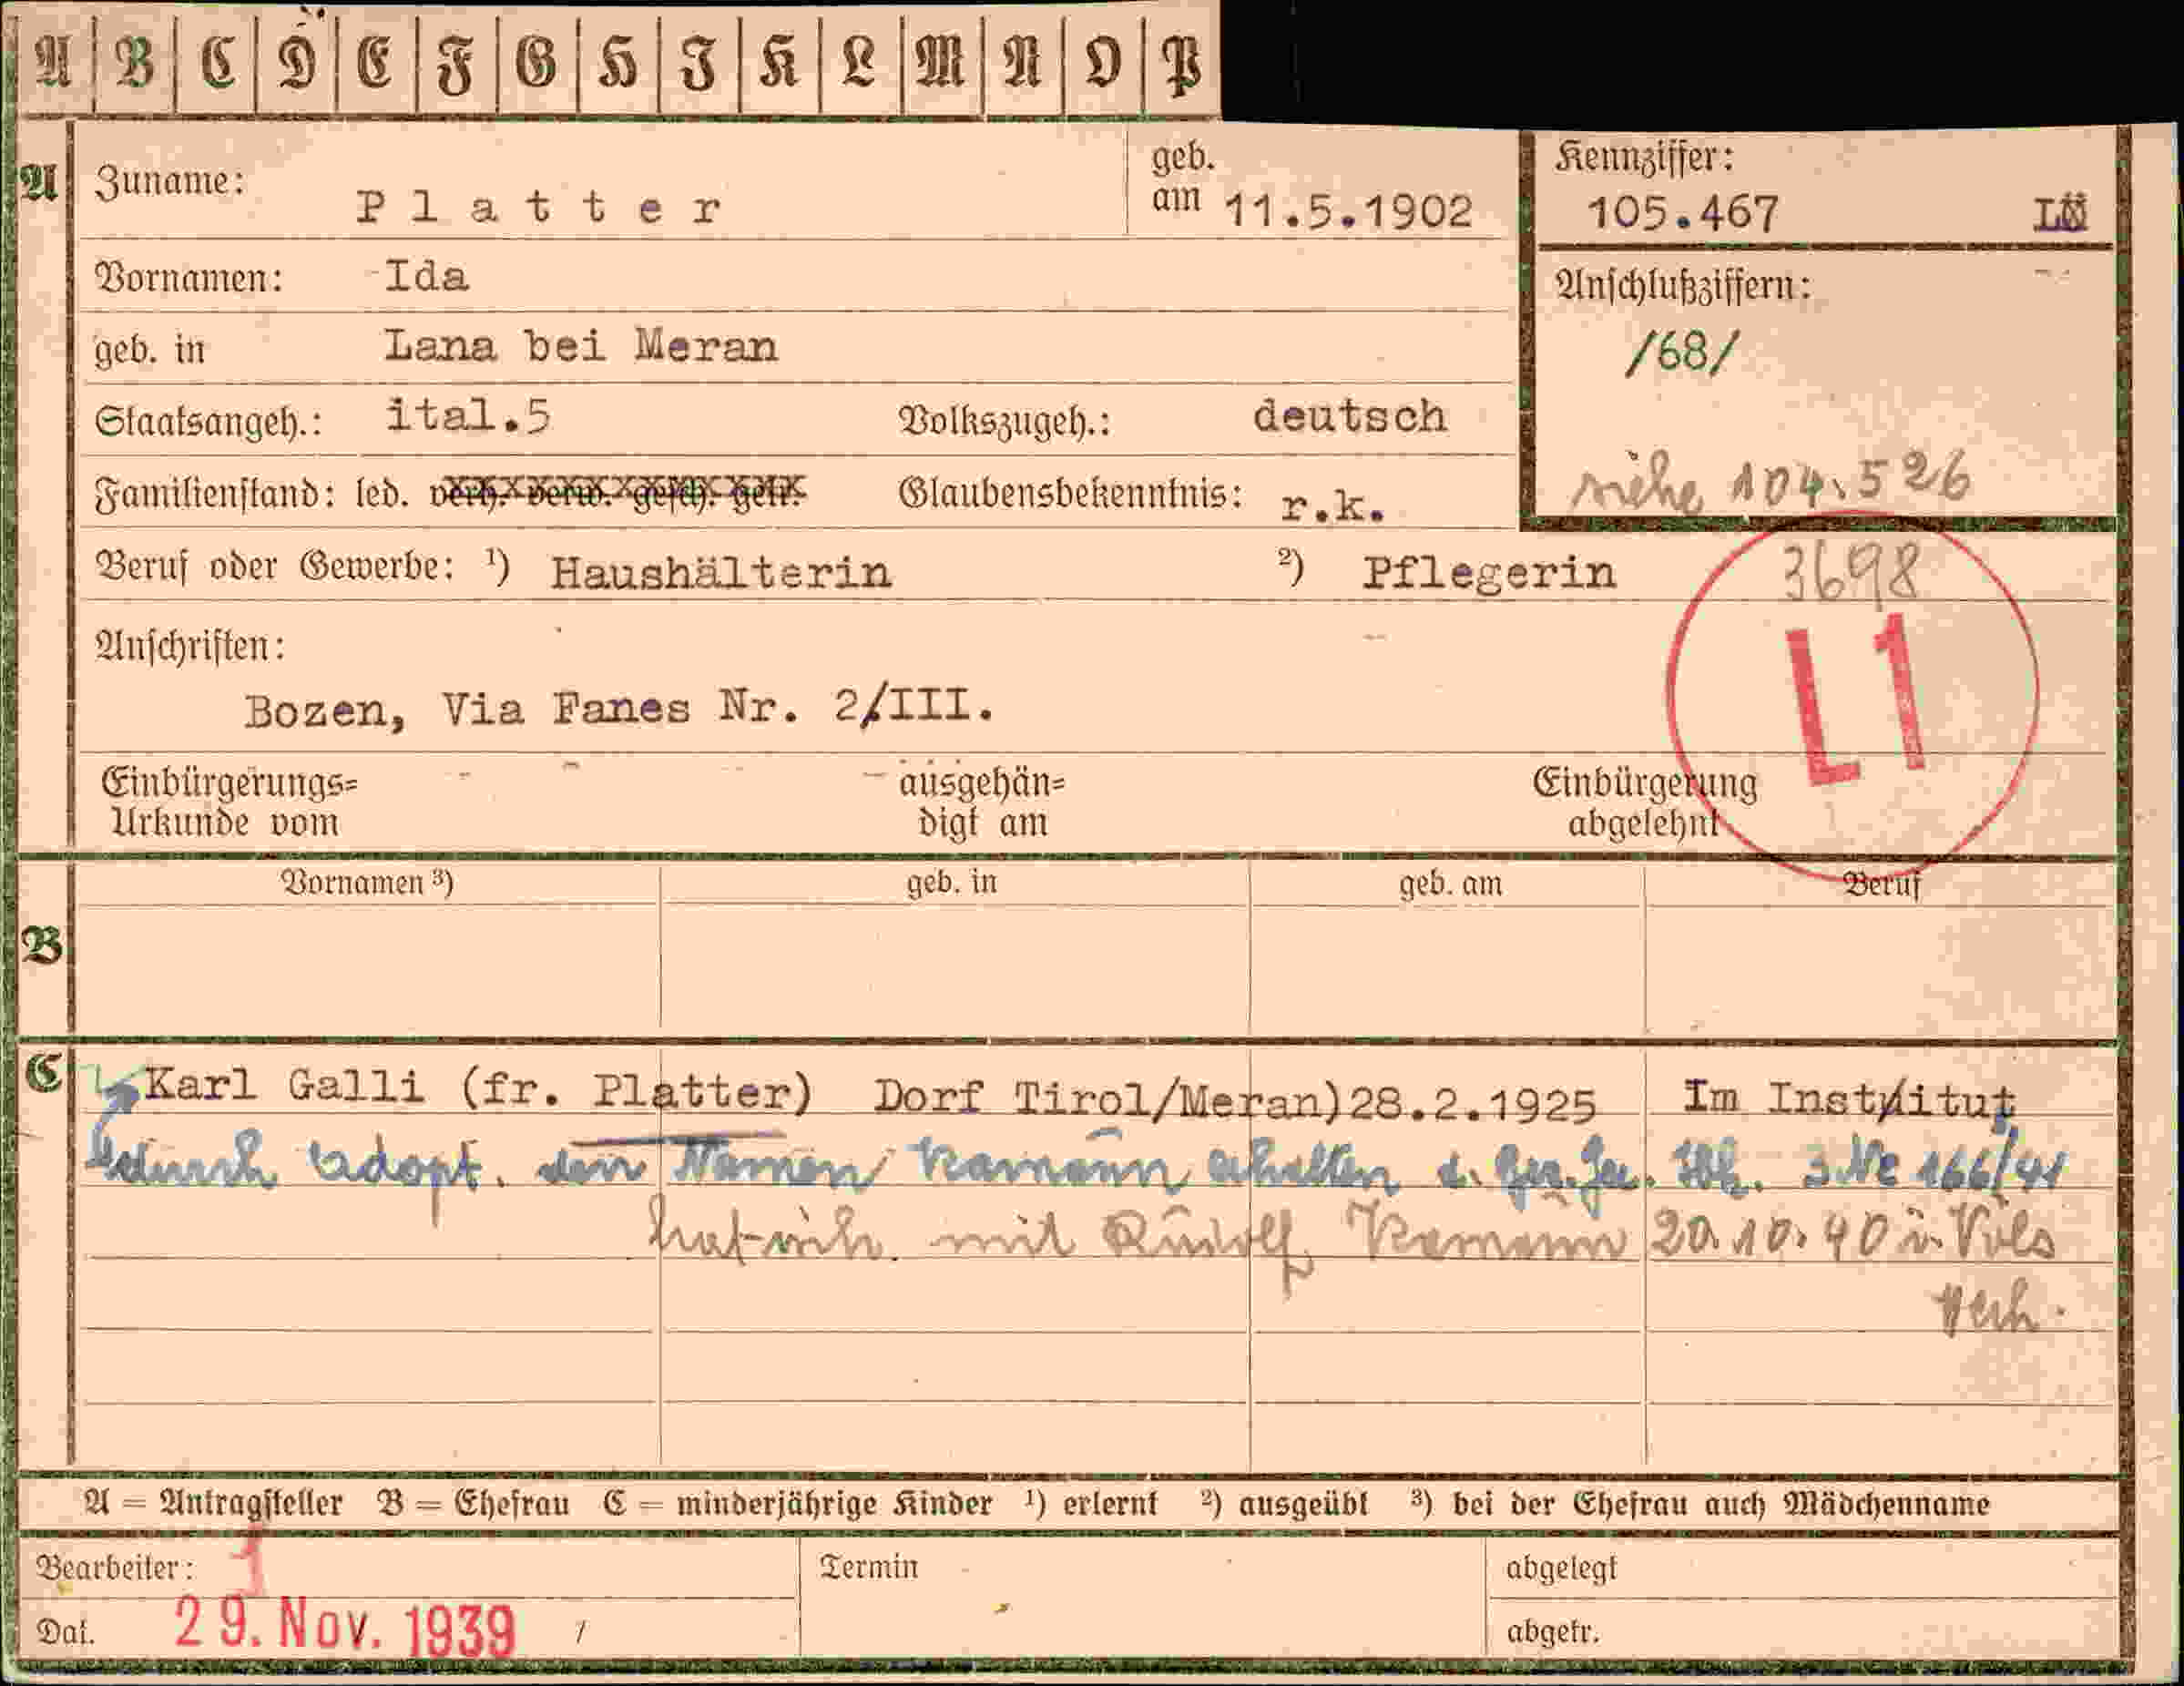 A B C D E F G H I K L M N O P
A Zuname: Platter geb. am 11.5.1902 Kennziffer: 105.467 LÖ
Vornamen: Ida Anschlußziffern:
geb. in Lana bei Meran /68/
Staatsangeh.: ital.5 Volkszugeh.: deutsch
Familienstand: led. verh. verw. gesch. getr. Glaubensbekenntnis: r.k. siehe 104.526
Beruf oder Gewerbe: 1) Haushälterin 2) Pflegerin 3698
Anschriften: L1
Bozen, Via Fanes Nr. 2/III.
Einbürgerungs= ausgehän= Einbürgerung
Urkunde vom digt am abgelehnt
Vornamen 3) geb. in geb. am Beruf
B
C Karl Galli (fr. Platter) Dorf Tirol/Meran) 28.2.1925 Im Inst/itut
durch Adopt. den Namen Ramann erhalten d. 3 Nc 166/41
hat sich mit Rudolf Ramann 20.10.40 in Völs
verh.
A = Antragsteller B = Ehefrau C = minderjährige Kinder 1) erlernt 2) ausgeübt 3) bei der Ehefrau auch Mädchenname
Bearbeiter: 1 Termin abgelegt
Dat. 29. Nov. 1939 / abgetr.